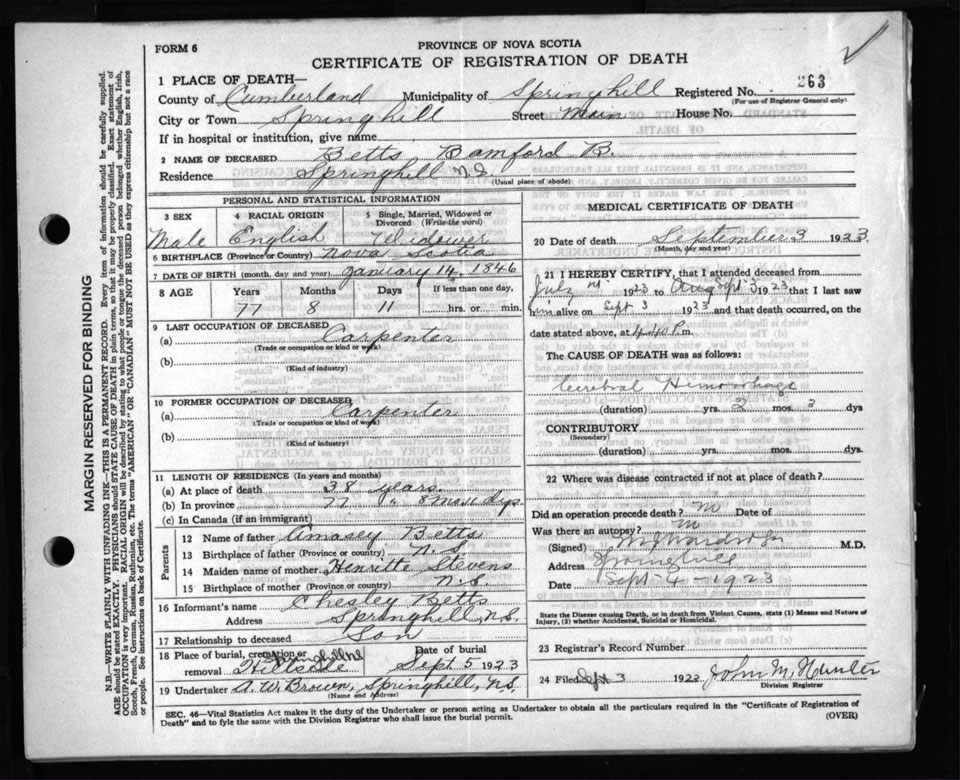 FORM 6
PROVINCE OF NOVA SCOTIA
CERTIFICATE OF REGISTRATION OF DEATH
1 PLACE OF DEATH—
County of Cumberland Municipality of Springhill Registered No. 263
(For use of Registrar General only)
City or Town Springhill Street Main House No.
If in hospital or institution, give name
2 NAME OF DECEASED Betts Bamford B.
Residence Springhill N.S.
(Usual place of abode)
PERSONAL AND STATISTICAL INFORMATION
3 SEX 4 RACIAL ORIGIN 5 Single, Married, Widowed or Divorced (Write the word)
Male English Widower
6 BIRTHPLACE (Province or Country) Nova Scotia
7 DATE OF BIRTH (month, day and year) January 14, 1846
8 AGE Years Months Days If less than one day,
77 8 11 hrs. or min.
9 LAST OCCUPATION OF DECEASED
(a) Carpenter
(Trade or occupation or kind of work)
(b)
(Kind of industry)
10 FORMER OCCUPATION OF DECEASED
(a) Carpenter
(Trade or occupation or kind of work)
(b)
(Kind of industry)
11 LENGTH OF RESIDENCE (In years and months)
(a) At place of death 38 years.
(b) In province 77 " 8 mo. 11 dys.
(c) In Canada (if an immigrant)
Parents
12 Name of father Amasey Betts
13 Birthplace of father (Province or country) N.S.
14 Maiden name of mother Henrette Stevens
15 Birthplace of mother (Province or country) N.S.
16 Informant's name Chesley Betts
Address Springhill, N.S.
17 Relationship to deceased Son
18 Place of burial, cremation or removal Hillside Springhill N.S. Date of burial Sept 5 1923
19 Undertaker A. W. Brown, Springhill, N.S.
(Name and Address)
MEDICAL CERTIFICATE OF DEATH
20 Date of death September 3 1923
(Month, day and year)
21 I HEREBY CERTIFY, that I attended deceased from
July 1st 1923 to Aug Sept 3 1923 that I last saw
him alive on Sept 3 1923 and that death occurred, on the
date stated above, at 4.40 P.m.
The CAUSE OF DEATH was as follows:
Cerebral Hemorrhage
(duration) yrs. 2 mos. 3 dys
CONTRIBUTORY
(Secondary)
(duration) yrs. mos. dys
22 Where was disease contracted if not at place of death?
Did an operation precede death? Date of
Was there an autopsy?
(Signed) M.D.
Address Springhill
Date Sept-4-1923
State the Disease causing Death, or in death from Violent Causes, state (1) Means and Nature of Injury, (2) whether Accidental, Suicidal or Homicidal.
23 Registrar's Record Number
24 Filed Sept 3 1923 John M. Hunter
Division Registrar
SEC. 46—Vital Statistics Act makes it the duty of the Undertaker or person acting as Undertaker to obtain all the particulars required in the "Certificate of Registration of
Death" and to fyle the same with the Division Registrar who shall issue the burial permit. (OVER)
MARGIN RESERVED FOR BINDING
N.B.—WRITE PLAINLY WITH UNFADING INK—THIS IS A PERMANENT RECORD. Every item of information should be carefully supplied.
AGE should be stated EXACTLY. PHYSICIANS should STATE CAUSE OF DEATH in plain terms, so that it may be properly classified. Exact statement of
OCCUPATION is very important. RACIAL ORIGIN will be described by stating to what people or tongue the deceased person belonged whether English, Irish,
Scotch, French, German, Russian, Ruthenian, etc. The terms "AMERICAN" OR "CANADIAN" MUST NOT BE USED as they express citizenship but not a race
or people. See instructions on back of Certificate.